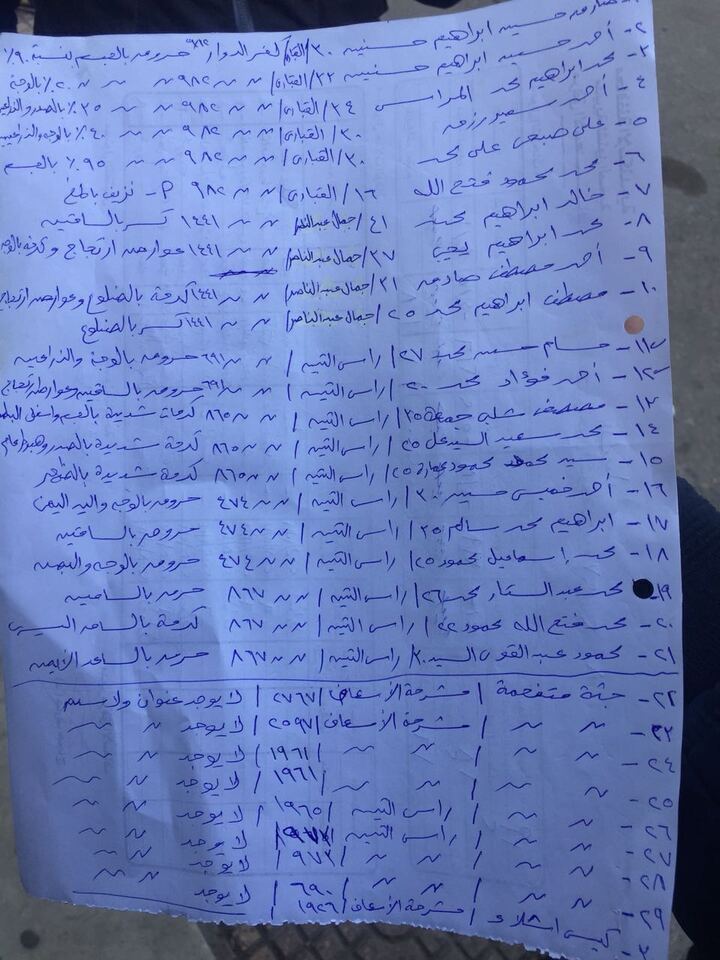 حسين ابراهيم حسنين ٣٠/ القبارى/ كفر الدوار ٩٨٢ حروق بالجسم بنسبة ٩٠٪
٢- أحمد حسين ابراهيم حسنين ٣٢/ القبارى/ ~ ~ ٩٨٢ ~ ~ ٢٠٪ بالوجه
٣- محمد ابراهيم محمد المراسى ٣٤/ القبارى/ ~ ~ ٩٨٢ ~ ~ ٣٥٪ بالصدر والذراعين
٤- أحمد سعيد رزق ٣٠/ القبارى/ ~ ~ ٩٨٢ ~ ~ ٤٠٪ بالوجه والذراعين
٥- على صبحى على محمد ٣٠/ القبارى/ ~ ~ ٩٨٢ ~ ~ ٩٥٪ بالجسم
٦- محمد محمود فتح الله ١٦/ القبارى/ ~ ~ ٩٨٢ نزيف بالمخ
٧- خالد ابراهيم محمد ٤١/ جمال عبد الناصر/ ~ ~ ١٤٤١ كسر بالساقين
٨- محمد ابراهيم يحيى ٣٧/ جمال عبد الناصر/ ~ ~ ١٤٤١ عوارض ارتجاج وكدمة بالوجه
٩- أحمد مصطفى صادق ٣١/ جمال عبد الناصر/ ~ ~ ١٤٤١ كدمة بالضلوع وعوارض ارتجاج
١٠- مصطفى ابراهيم محمد ٢٥/ جمال عبد الناصر/ ~ ~ ١٤٤١ كسر بالضلوع
١١- حسام حسن محمد ٢٧/ راس التين/ ~ ~ ٦٩١ حروق بالوجه والذراعين
١٢- أحمد فؤاد محمد ٢٠/ راس التين/ ~ ~ ٦٩١ حروق بالساقين وعوارض ارتجاج
١٣- مصطفى جمعة ٣٥/ راس التين/ ~ ~ ٨٦٥ كدمات شديدة بالجسم واسفل البطن
١٤- محمد سعيد السيد على ٢٥/ راس التين/ ~ ~ ٨٦٥ كدمة شديدة بالصدر
١٥- سيد محمد محمود عمارة ٢٥/ راس التين/ ~ ~ ٨٦٥ كدمة شديدة بالظهر
١٦- أحمد خميس حسين ٣٠/ راس التين/ ~ ~ ٤٧٤ حروق بالوجه واليد اليمنى
١٧- ابراهيم محمد سالم ٣٥/ راس التين/ ~ ~ ٤٧٤ حروق بالساقين
١٨- محمد إسماعيل محمود ٢٥/ راس التين/ ~ ~ ٤٧٤ حروق بالوجه والبطن
١٩- محمد عبد الستار محمد ٢٦/ راس التين/ ~ ~ ٨٦٧ حروق بالساقين
٢٠- محمد فتح الله محمود ٢٢/ راس التين/ ~ ~ ٨٦٧ كدمة بالساعد اليسرى
٢١- محمود عبد القوى السيد ٣٠/ راس التين/ ~ ~ ٨٦٧ حروق بالساعد الأيمن
٢٢- جثة متفحمة/ مشرحة الأسعاف/ ٢٧٦٧/ لا يوجد عنوان ولا سيم
٢٣- ~ ~/ مشرحة الأسعاف/ ٢٥٩٧/ لا يوجد ~ ~
٢٤- ~ ~/ ~ ~/ ١٩٦١/ لا يوجد ~ ~
٢٥- ~ ~/ ~ ~/ ١٩٦١/ لا يوجد ~ ~
٢٦- ~ ~/ راس التين/ ١٩٦٥/ لا يوجد ~ ~
٢٧- ~ ~/ راس التين/ لا يوجد ~ ~
٢٨- ~ ~/ ~ ~/ ٩٧٢/ لا يوجد ~ ~
٢٩- ~ ~/ ~ ~/ ٦٩٠/ لا يوجد ~ ~
٣٠- كيس اشلاء/ مشرحة الأسعاف/ ١٩٢٦/ لا يوجد